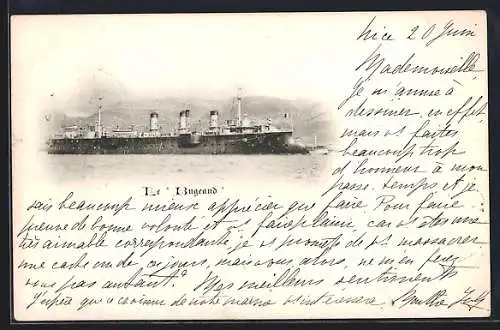 Nice 20 Juin
Mademoiselle,
Je m'amuse à
dessiner, en effet,
mais vs faites
beaucoup trop
d'honneur à mon
passe-temps et je
Le "Bugeaud"
sais beaucoup mieux apprécier que faire. Pour faire
preuve de bonne volonté et vs faire plaisir, car vs êtes une
très aimable correspondante, je vs promets de vs massacrer
une carte un de ces jours, mais vous alors, ne m'en ferez
vous pas autant? Mes meilleurs sentiments
J'espère que ce croiseur de notre marine vs intéressera